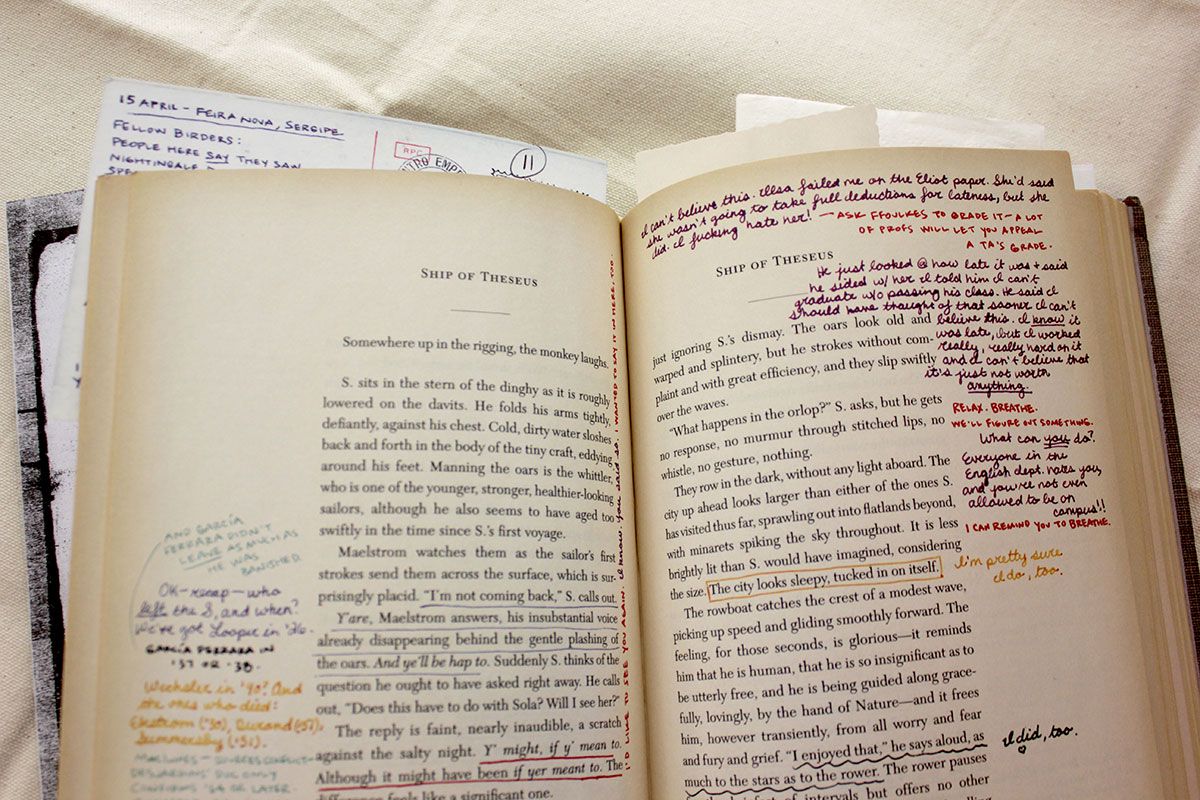 15 APRIL - FEIRA NOVA, SERGIPE
FELLOW BIRDERS:
PEOPLE HERE SAY THEY SAW
NIGHTINGALE
RPC
11
SHIP OF THESEUS
Somewhere up in the rigging, the monkey laughs.
S. sits in the stern of the dinghy as it is roughly
lowered on the davits. He folds his arms tightly,
defiantly, against his chest. Cold, dirty water sloshes
back and forth in the body of the tiny craft, eddying
around his feet. Manning the oars is the whittler,
who is one of the younger, stronger, healthier-looking
sailors, although he also seems to have aged too
swiftly in the time since S.'s first voyage.
Maelstrom watches them as the sailor's first
strokes send them across the surface, which is sur-
prisingly placid. "I'm not coming back," S. calls out.
Y'are, Maelstrom answers, his insubstantial voice
already disappearing behind the gentle plashing of
the oars. And ye'll be hap to. Suddenly S. thinks of the
question he ought to have asked right away. He calls
out, "Does this have to do with Sola? Will I see her?"
The reply is faint, nearly inaudible, a scratch
against the salty night. Y' might, if y' mean to.
Although it might have been if yer meant to. The
difference feels like a significant one.
AND GARCÍA
FERRARA DIDN'T
LEAVE AS MUCH AS
HE WAS
BANISHED
OK-recap-who
left the S, and when?
We've got Looper in '36.
GARCÍA FERRARA IN
'37 OR '38.
Wechsler in '40? And
the ones who died:
Ekstrom ('30), Durand ('37),
Summersby ('51).
I'D LIKE TO SEE YOU AGAIN. I know. You said so. I WANTED TO SAY IT IN HERE, TOO.
I can't believe this. Ilsa failed me on the Eliot paper. She'd said
she wasn't going to take full deductions for lateness, but she
did. I fucking hate her! — ASK FFOULKES TO GRADE IT—A LOT
OF PROFS WILL LET YOU APPEAL
A TA'S GRADE.
SHIP OF THESEUS
He just looked @ how late it was + said
he sided w/ her. I told him I can't
graduate w/o passing his class. He said I
should have thought of that sooner. I can't
believe this. I know it
was late, but I worked
really, really hard on it
and I can't believe that
it's just not worth
anything.
RELAX. BREATHE.
WE'LL FIGURE OUT SOMETHING.
What can you do?
Everyone in the
English dept. hates you,
and you're not even
allowed to be on
campus!!
I CAN REMIND YOU TO BREATHE.
I'm pretty sure
I do, too.
just ignoring S.'s dismay. The oars look old and
warped and splintery, but he strokes without com-
plaint and with great efficiency, and they slip swiftly
over the waves.
"What happens in the orlop?" S. asks, but he gets
no response, no murmur through stitched lips, no
whistle, no gesture, nothing.
They row in the dark, without any light aboard. The
city up ahead looks larger than either of the ones S.
has visited thus far, sprawling out into flatlands beyond,
with minarets spiking the sky throughout. It is less
brightly lit than S. would have imagined, considering
the size. The city looks sleepy, tucked in on itself.
The rowboat catches the crest of a modest wave,
picking up speed and gliding smoothly forward. The
feeling, for those seconds, is glorious—it reminds
him that he is human, that he is so insignificant as to
be utterly free, and he is being guided along grace-
fully, lovingly, by the hand of Nature—and it frees
him, however transiently, from all worry and fear
and fury and grief. "I enjoyed that," he says aloud, as
much to the stars as to the rower. The rower pauses
of intervals but offers no other
I did, too.